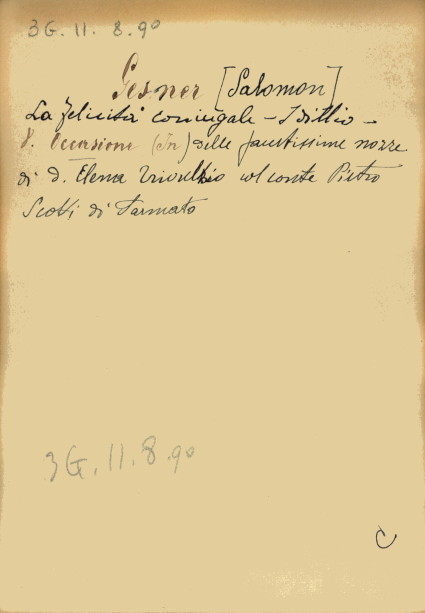 3 G. 11. 8. 90
Gesner [Salomon]
La felicità coniugale - Idillio -
v. Occasione (In) delle faustissime nozze
di D. Elena Trivulzio col conte Pietro
Scotti di Sarmato
3 G. 11. 8. 90
C